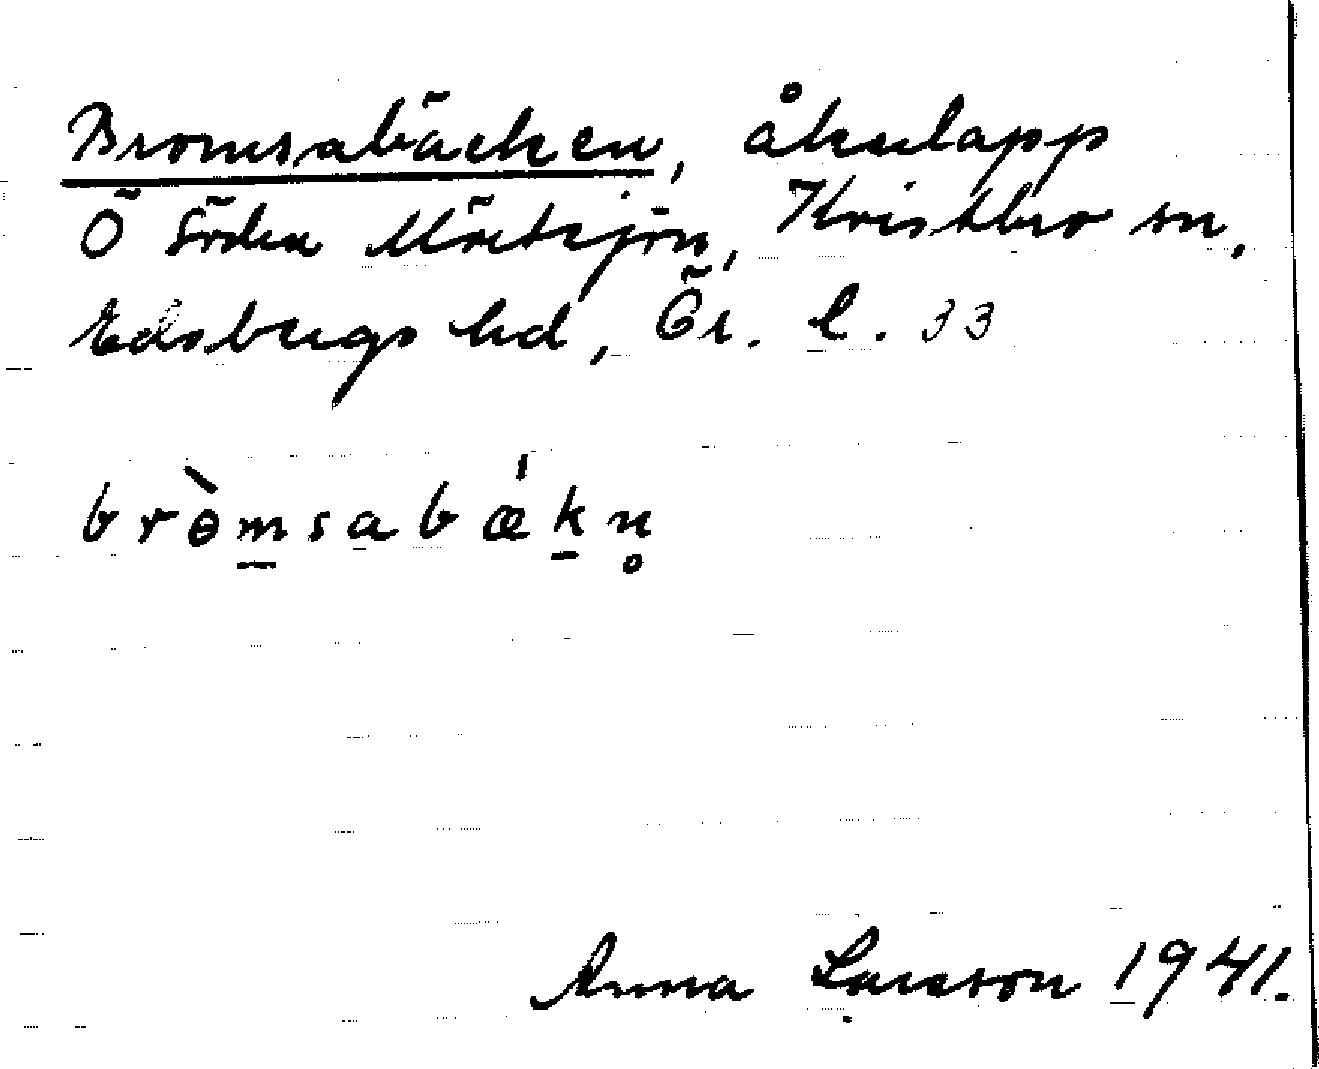 Bromsabäcken, åkerlapp
Ö Södra Mörtsjön, Kvistbro sn,
Edsbergs hd, Ör. l. 33
brɵ̀m̲sabǽk̲n̥
Anna Larsson 1941.